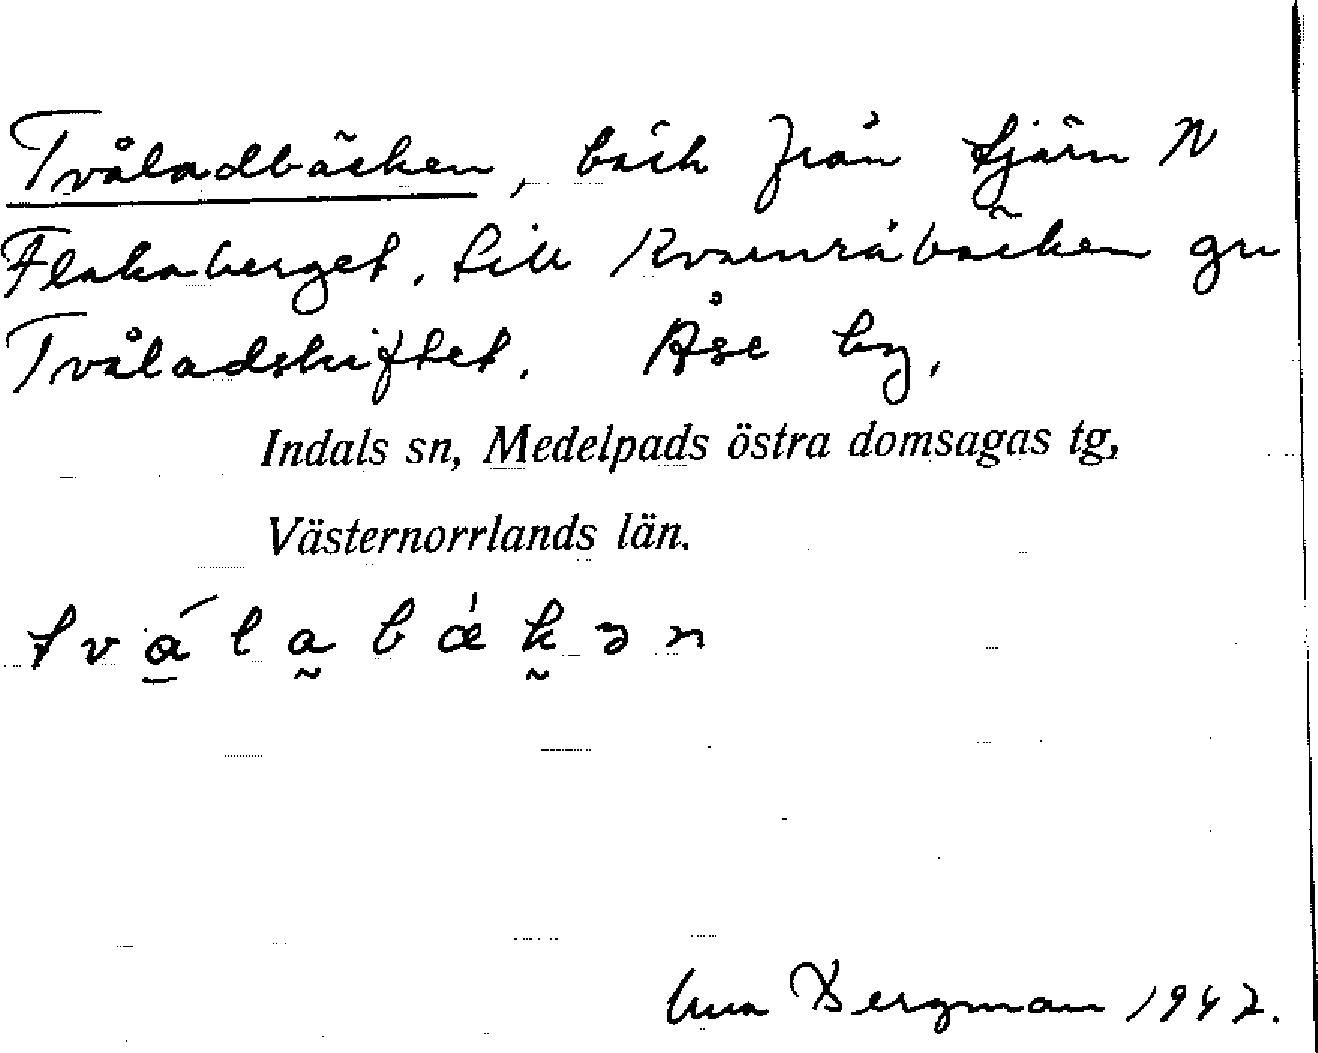 Tvåladbäcken, bäck från tjärn N
Flakaberget, till Kvarnråbäcken gm
Tvåladskiftet. Åse by,
Indals sn, Medelpads östra domsagas tg,
Västernorrlands län.
tvålabækən
Bergman 1942.